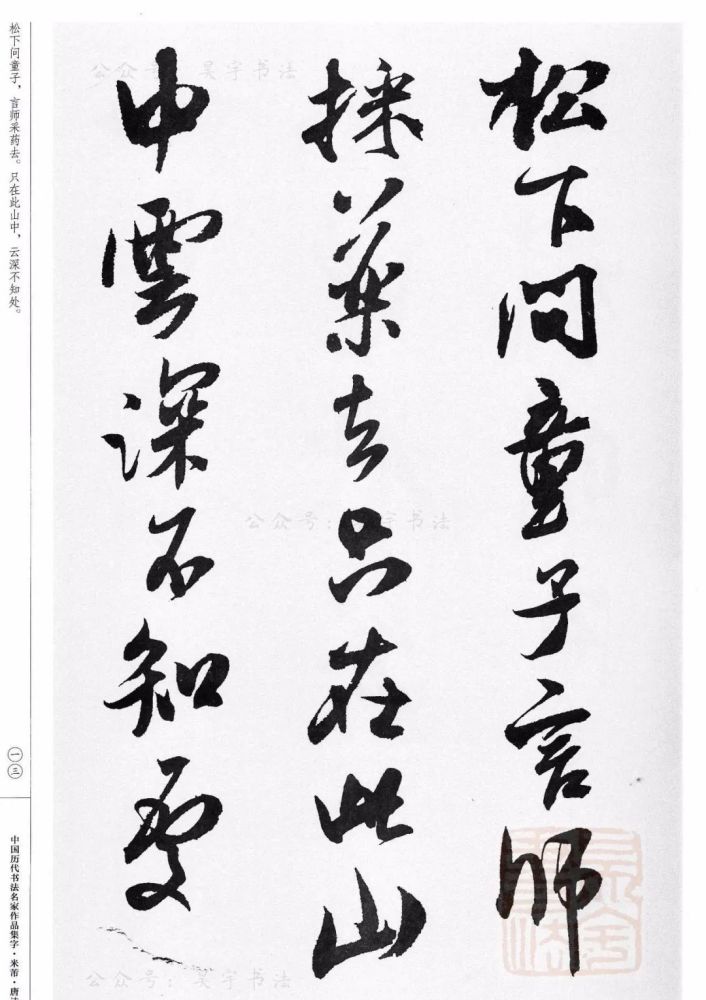 松下问童子言师
採藥去只在此山
中雲深不知處
松下问童子，言师采药去。只在此山中，云深不知处。
一三
中国历代书法名家作品集字·米芾·唐诗
公众号：吴宇书法
公众号：吴宇书法
公众号：吴宇书法